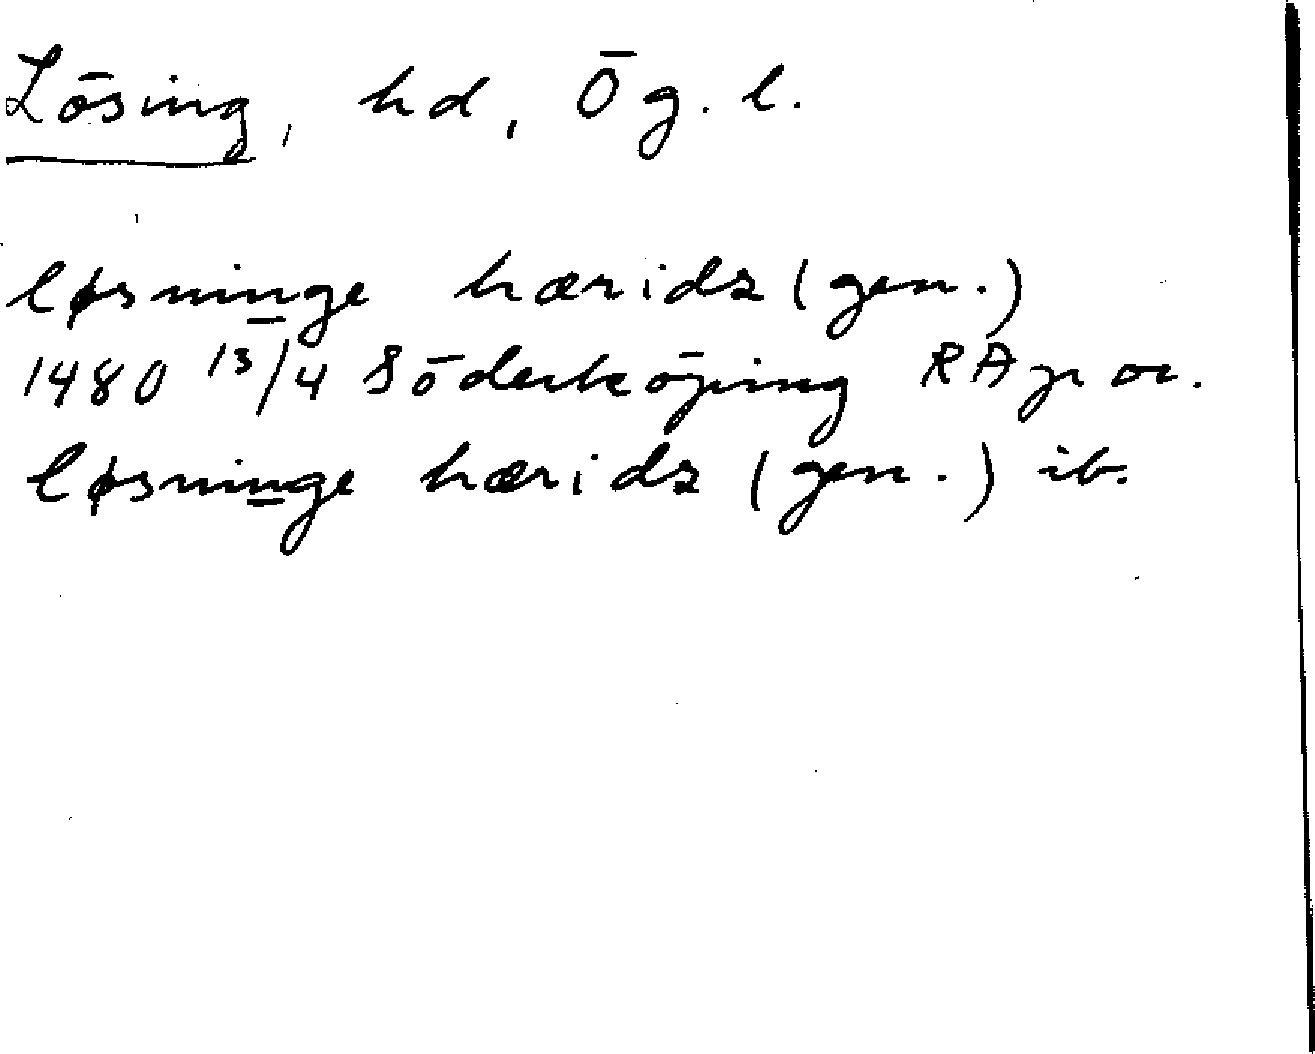 Lösing, hd, Ög. l.
løsninge hærids (gen.)
1480 13/4 Söderköping RAp or.
løsninge hærids (gen.) ib.